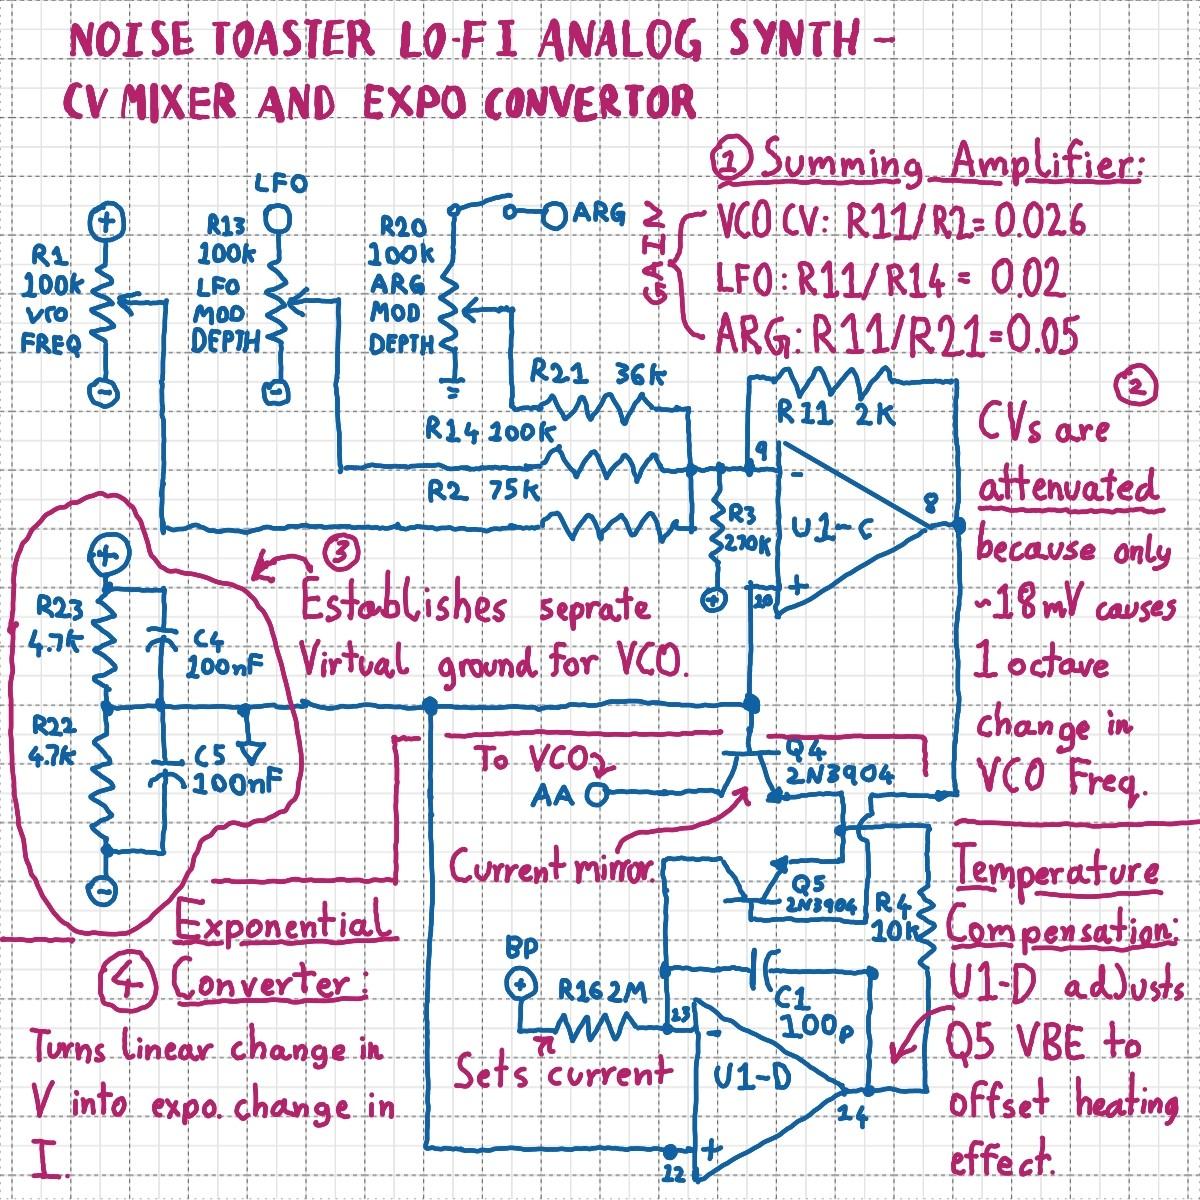 NOISE TOASTER LO-FI ANALOG SYNTH -
CV MIXER AND EXPO CONVERTOR
① Summing Amplifier:
GAIN
VCO CV: R11/R2= 0.026
LFO: R11/R14 = 0.02
ARG: R11/R21=0.05
LFO
+
R1
100k
VCO
FREQ
-
R13
100k
LFO
MOD
DEPTH
-
R20
100k
ARG
MOD
DEPTH
ARG
R21 36k
R14 100k
R2 75k
R11 2K
9
-
U1-C
8
+
10
R3
270k
+
②
CVs are
attenuated
because only
~18mV causes
1 octave
change in
VCO Freq.
③
Establishes seprate
Virtual ground for VCO.
+
R23
4.7k
C4
100nF
R22
4.7k
C5
100nF
-
To VCO
AA
Q4
2N3904
Current mirror.
Q5
2N3904
R4
10k
BP
+
R16 2M
Sets current
C1
100p
13
-
U1-D
14
+
12
④
Exponential
Converter:
Turns linear change in
V into expo. change in
I.
Temperature
Compensation:
U1-D adjusts
Q5 VBE to
offset heating
effect.